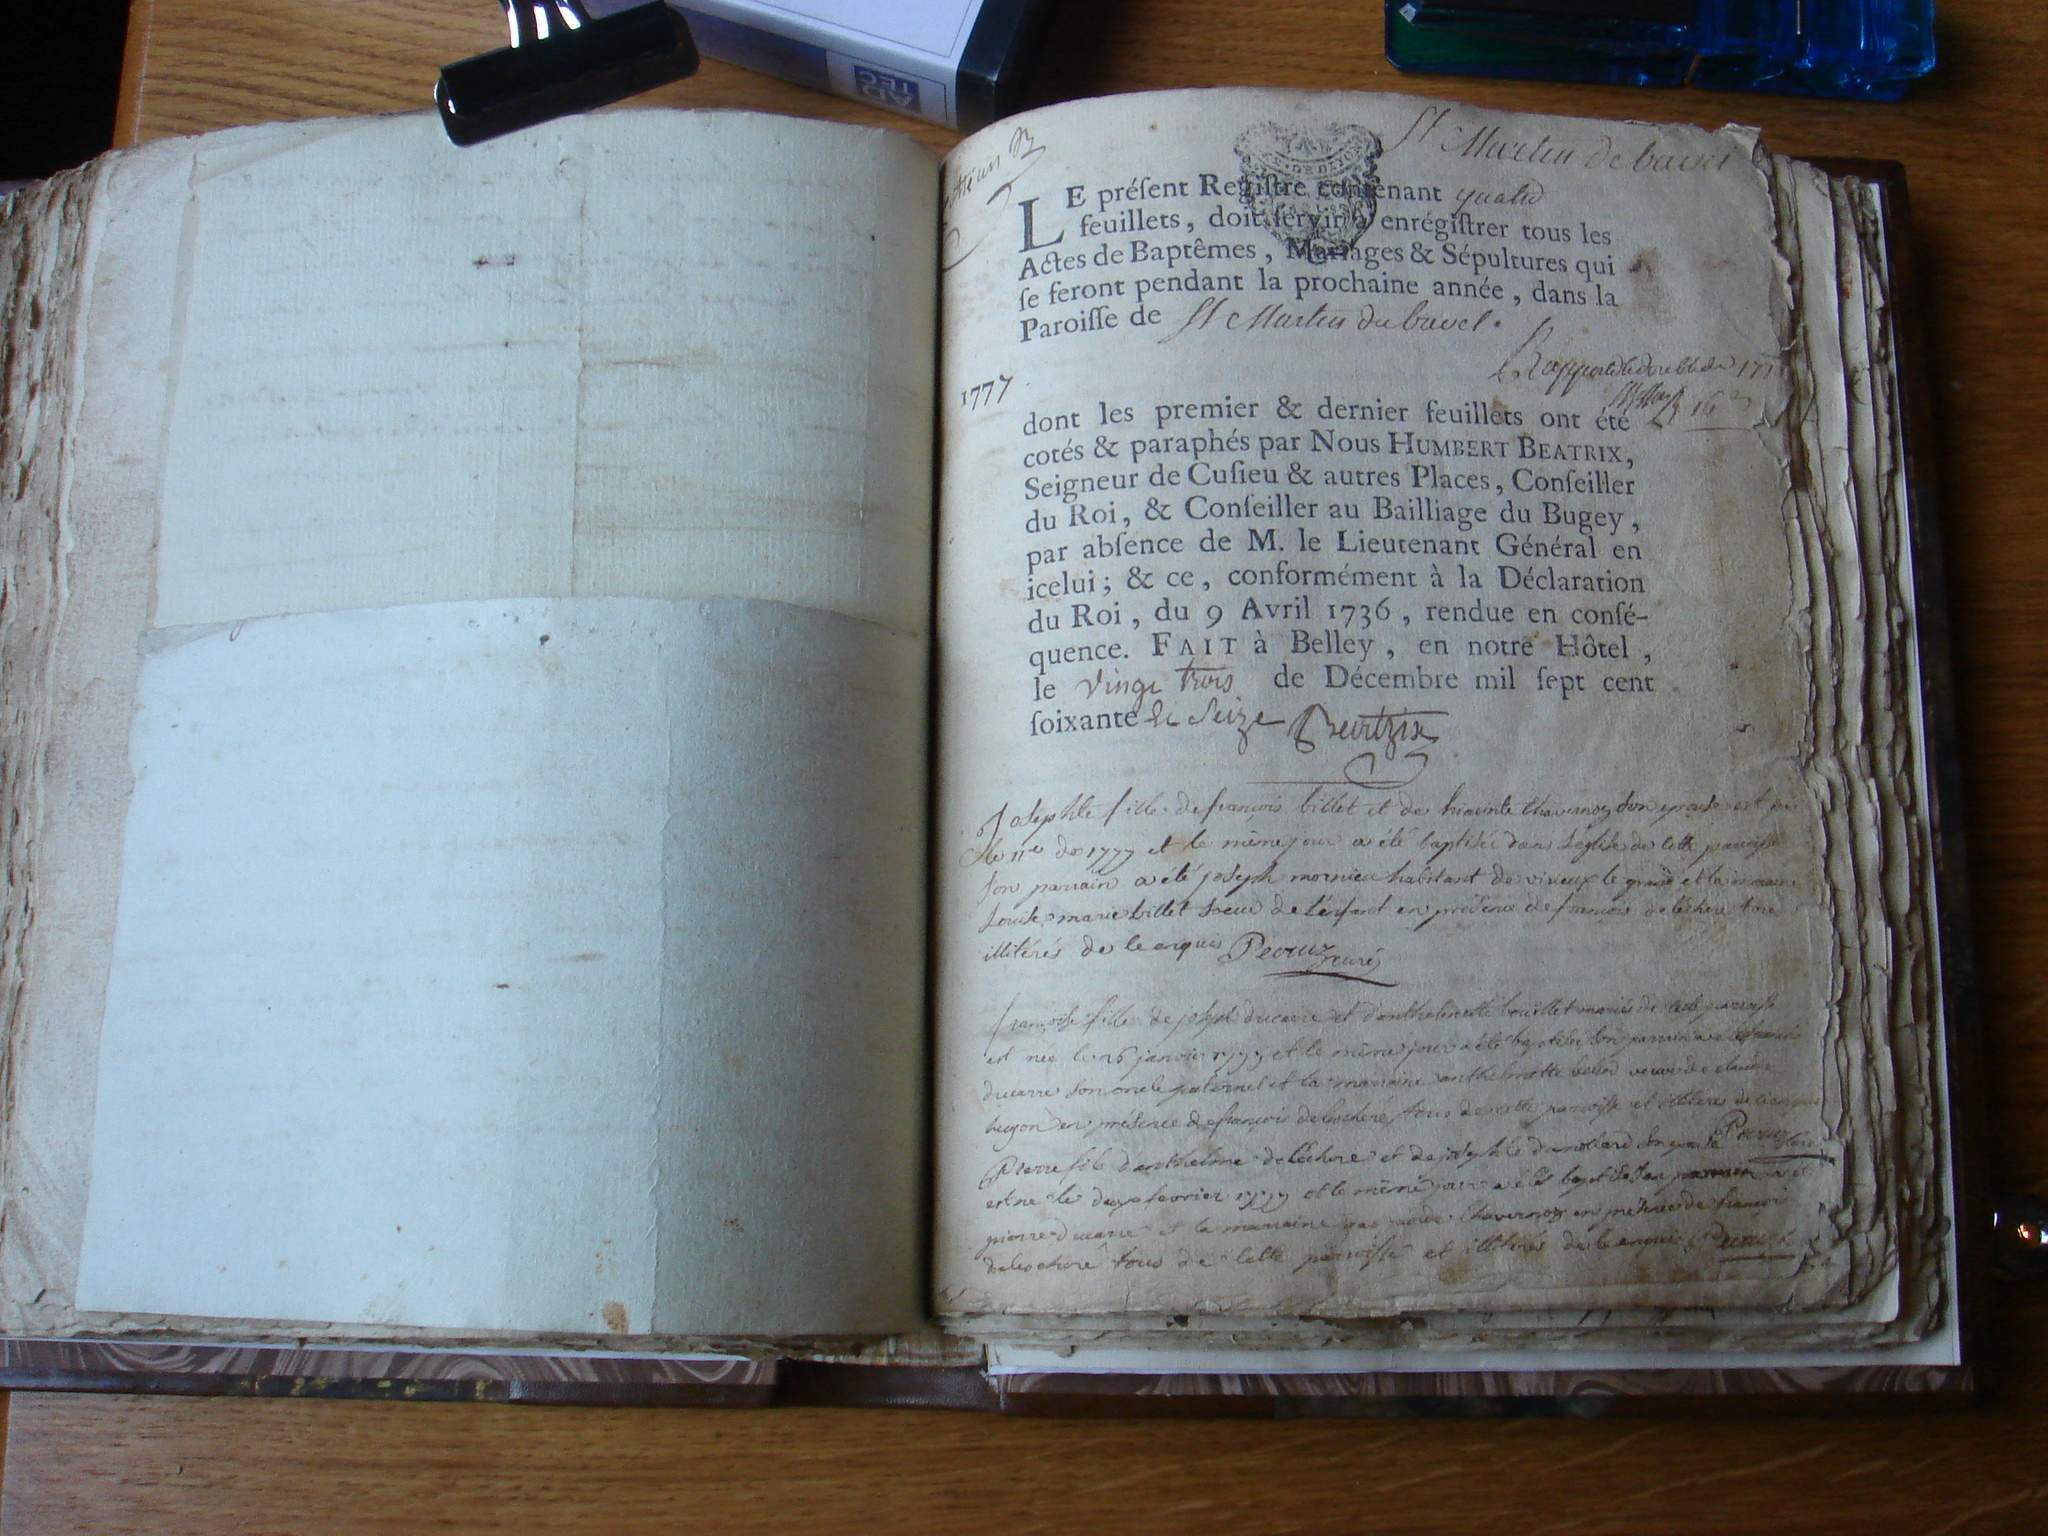 AD
TEC
St Martin de bavel
LE préſent Regiſtre contenant quatre
feuillets, doit ſervir à enrégiſtrer tous les
Actes de Baptêmes, Mariages & Sépultures qui
ſe feront pendant la prochaine année, dans la
Paroiſſe de St Martin du bavel.
1777
dont les premier & dernier feuillets ont été
cotés & paraphés par Nous HUMBERT BEATRIX,
Seigneur de Cuſieu & autres Places, Conſeiller
du Roi, & Conſeiller au Bailliage du Bugey,
par abſence de M. le Lieutenant Général en
icelui; & ce, conformément à la Déclaration
du Roi, du 9 Avril 1736, rendue en conſé-
quence. FAIT à Belley, en notre Hôtel,
le vingt trois de Décembre mil ſept cent
ſoixante et Seize Beatrix
Josephte fille de françois billet et de hiacinte Chavernoz son epouse est née
le 11e 1777 et le même jour a été baptisée dans l'église de cette paroisse
son parrain a été joseph mornieu habitant de virieux le grand et la marraine
Louise marie billet soeur de l'enfant en présence de francois delechere tous
illitérés de ce enquis Peouz curé
françoise fille de joseph ducarre et d'anthelmette bouillet mariés de cette parroisse
est née le 26 janvier 1777 et le même jour a été baptisée son parrain a été francois
ducarre son oncle paternel et la marraine anthelmette veuve de claude
hugon en présence de françois delechere tous de cette parroisse et illitérés de ce enquis
Peouz curé
Pierre fils d'anthelme delechere et de josephte dumollard son epouse
est né le deux fevrier 1777 et le même jour a été baptisé son parrain a été
pierre ducarre et la marraine Chavernoz en présence de françois
delechere tous de cette parroisse et illitérés de ce enquis Peouz